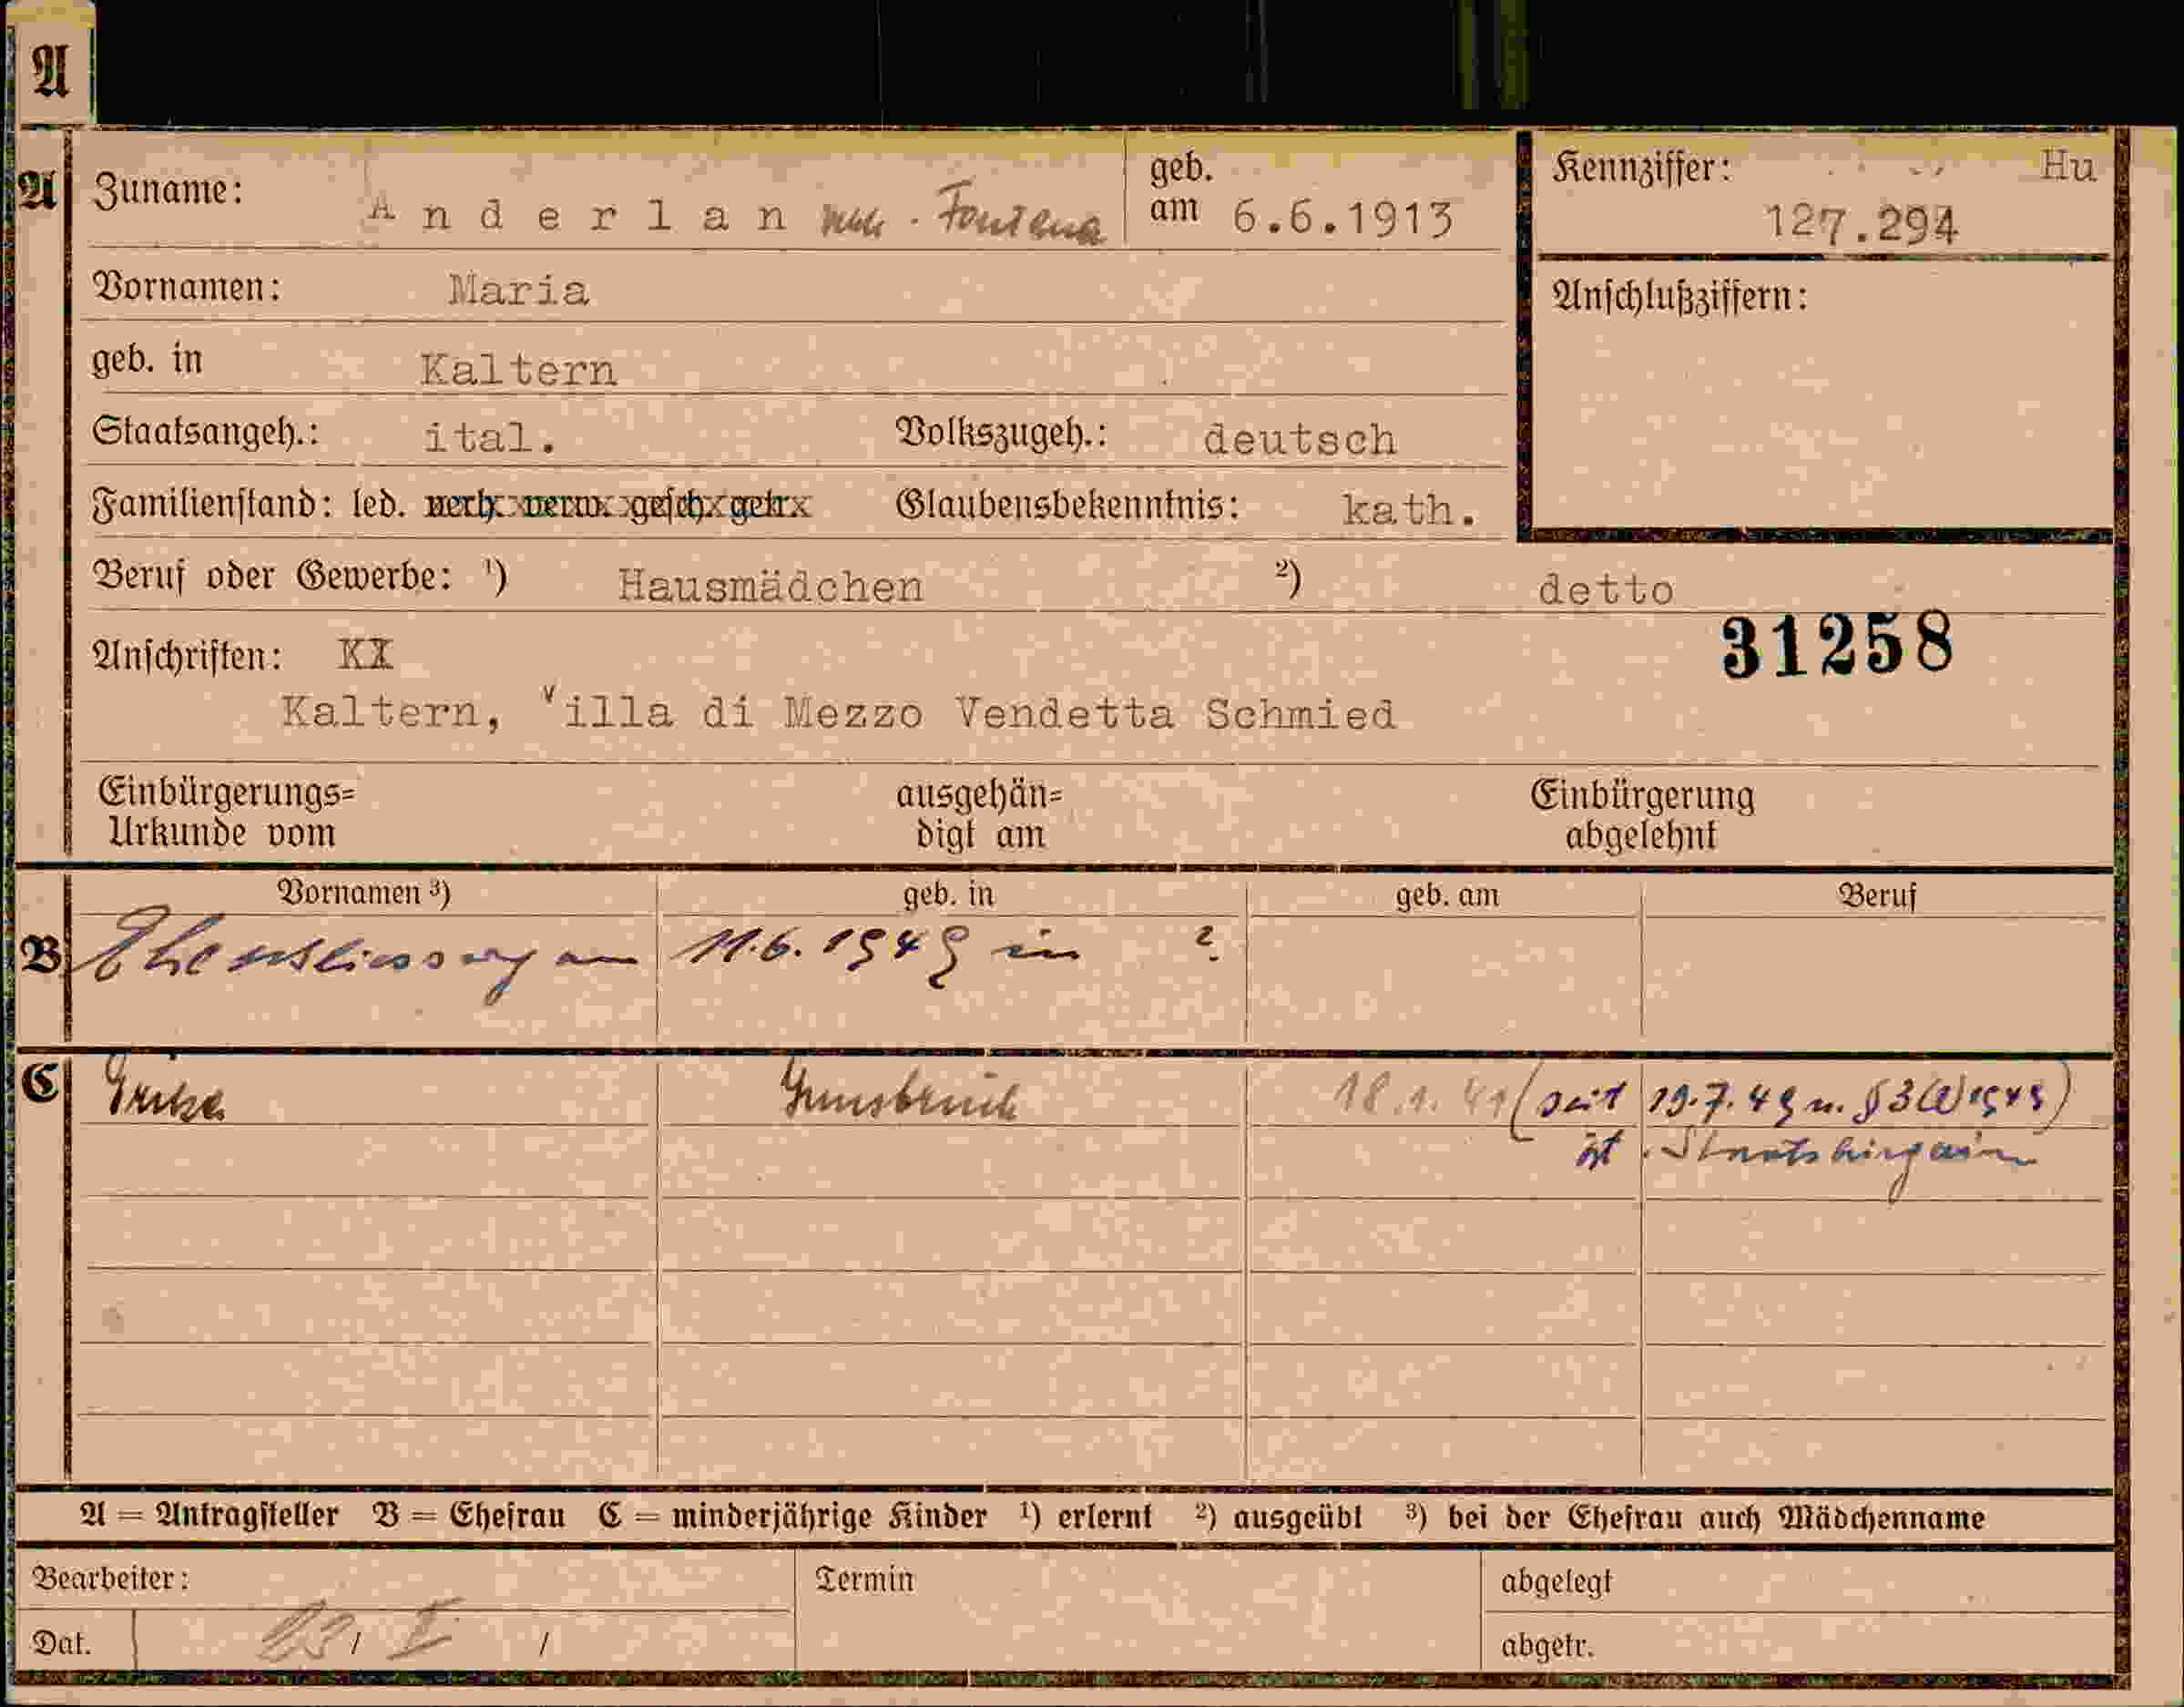 A
A Zuname: Anderlan Fontana geb. am 6.6.1913 Kennziffer: Hu
127.294
Vornamen: Maria Anschlußziffern:
geb. in Kaltern
Staatsangeh.: ital. Volkszugeh.: deutsch
Familienstand: led. verh. verw. gesch. getr. Glaubensbekenntnis: kath.
Beruf oder Gewerbe: ¹) Hausmädchen ²) detto
31258
Anschriften:
Kaltern, Villa di Mezzo Vendetta Schmied
Einbürgerungs= ausgehän= Einbürgerung
Urkunde vom digt am abgelehnt
Vornamen ³) geb. in geb. am Beruf
B Eheschliessung am 11.6.1949 in ?
C Erika Innsbruck 18.1.41 (seit 19.7.49 n. § 3 (2) 1949)
öst. Staatsbürgerin
A = Antragsteller B = Ehefrau C = minderjährige Kinder ¹) erlernt ²) ausgeübt ³) bei der Ehefrau auch Mädchenname
Bearbeiter: Termin abgelegt
Dat. / / abgetr.